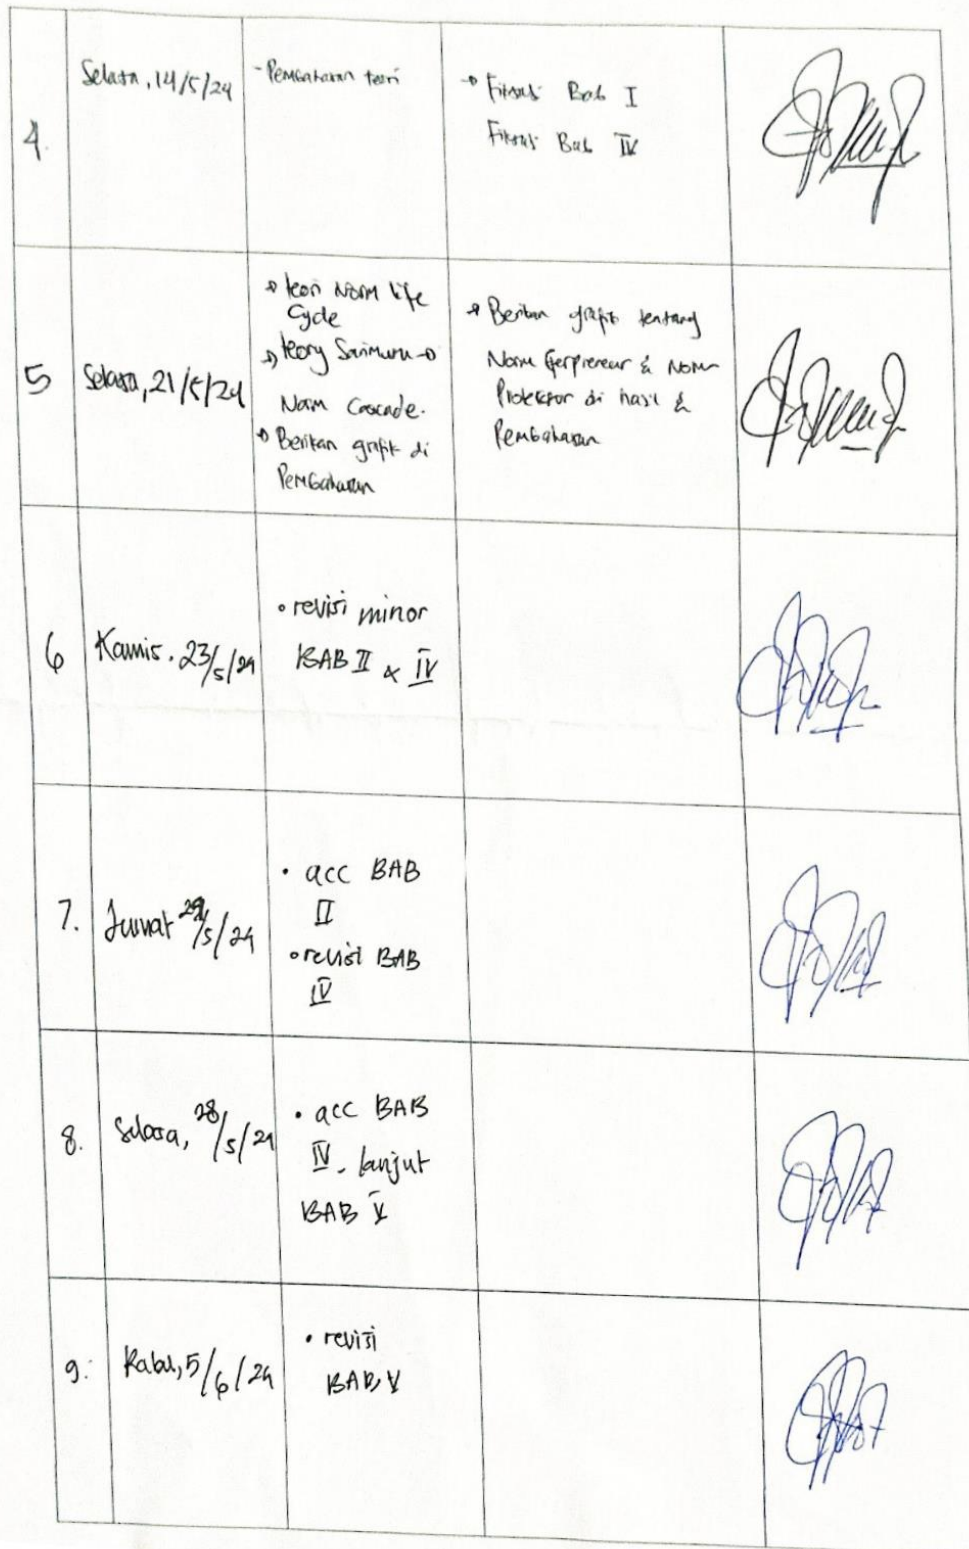 4.
Selasa, 14/5/24
- Pembahasan teori
→ Bab I
Bab IV
5
Selasa, 21/5/24
→ teori Norm life
Cycle
→ teory →
Norm Cascade.
→ Berikan grafik di
Pembahasan
→ Berikan grafik tentang
Norm & Norm
Protektor di hasil &
Pembahasan
6
Kamis. 23/5/24
• revisi minor
BAB II & IV
7.
Jumat /5/24
• acc BAB
II
• revisi BAB
IV
8.
Selasa, 28/5/24
• acc BAB
IV. lanjut
BAB V
9.
Rabu, 5/6/24
• revisi
BAB V